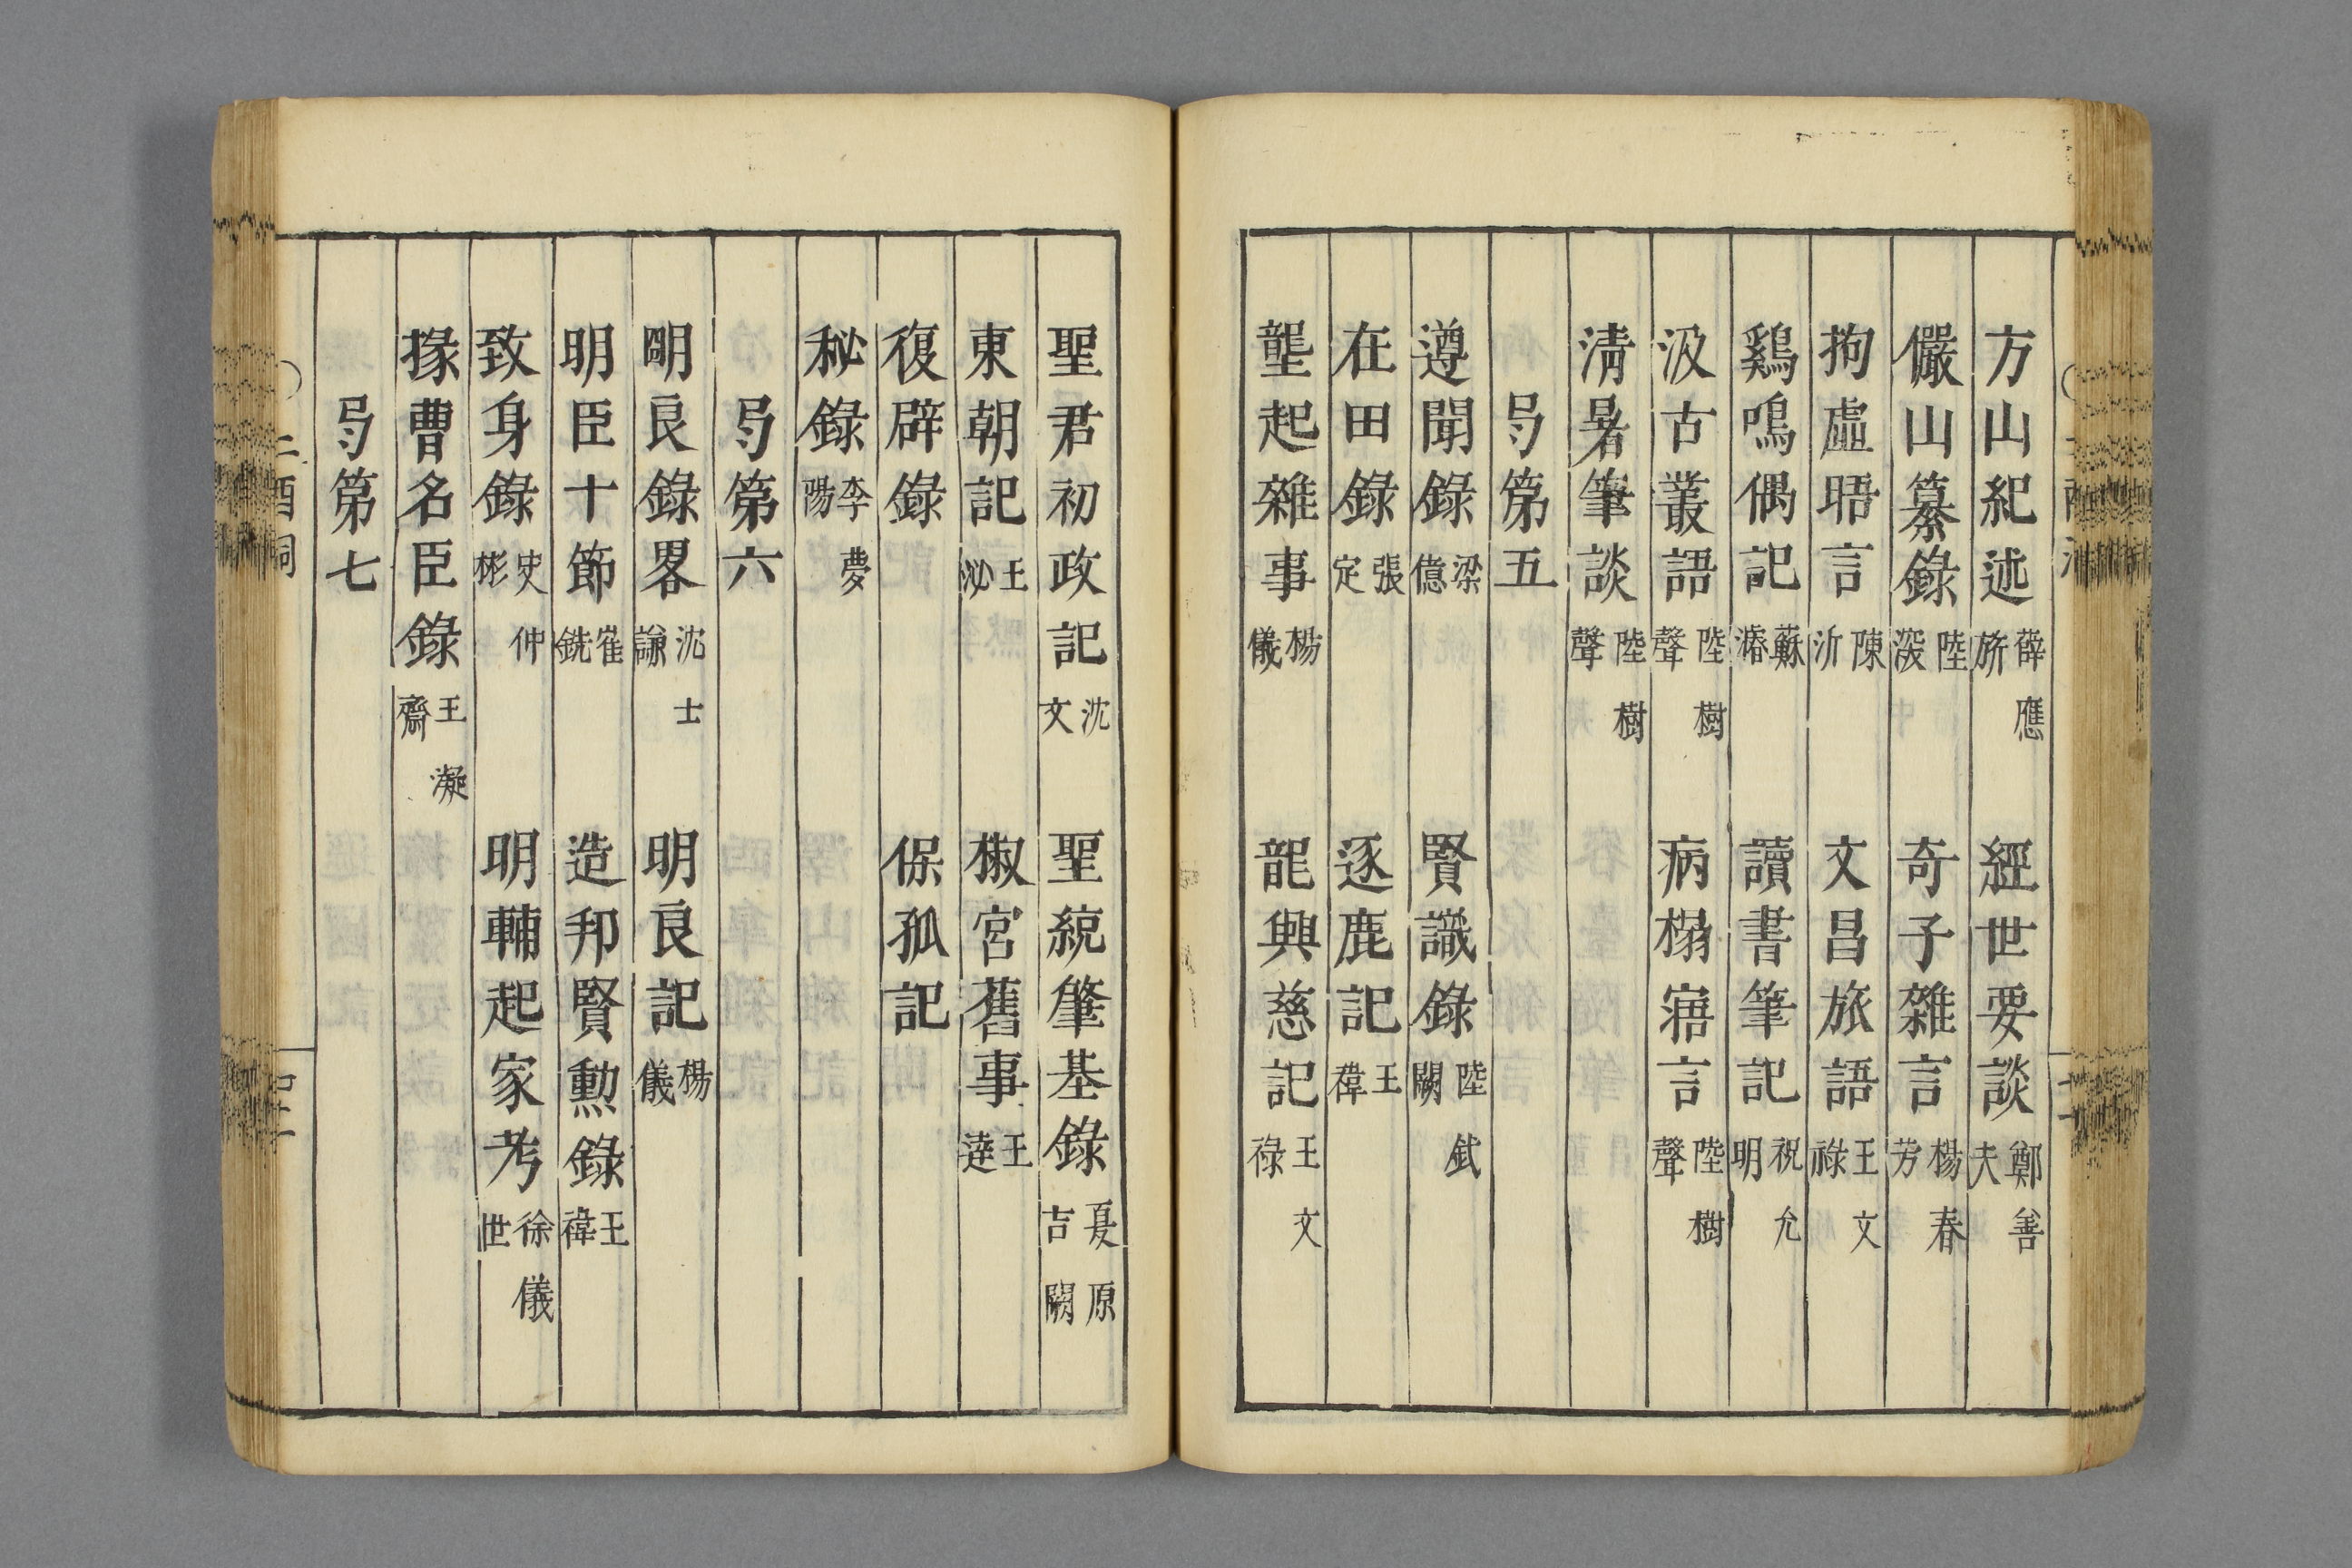 方山紀述 薛應旂 經世要談 鄭善夫
儼山纂錄 陸深 奇子雜言 楊春芳
拘虛晤言 陳沂 文昌旅語 王文祿
鷄鳴偶記 蘇濬 讀書筆記 祝允明
汲古叢語 陸樹聲 病榻寤言 陸樹聲
清暑筆談 陸樹聲
弓第五
遵聞錄 梁億 賢識錄 陸釴闕
在田錄 張定 逐鹿記 王禕
壟起雜事 楊儀 龍興慈記 王文祿
聖君初政記 沈文 聖統肇基錄 夏原吉闕
東朝記 王泌 椒宮舊事 王達
復辟錄 保孤記
秘錄 李夢陽
弓第六
明良錄畧 沈士謙 明良記 楊儀
明臣十節 崔銑 造邦賢勲錄 王禕
致身錄 史仲彬 明輔起家考 徐儀世
掾曹名臣錄 王凝齋
弓第七